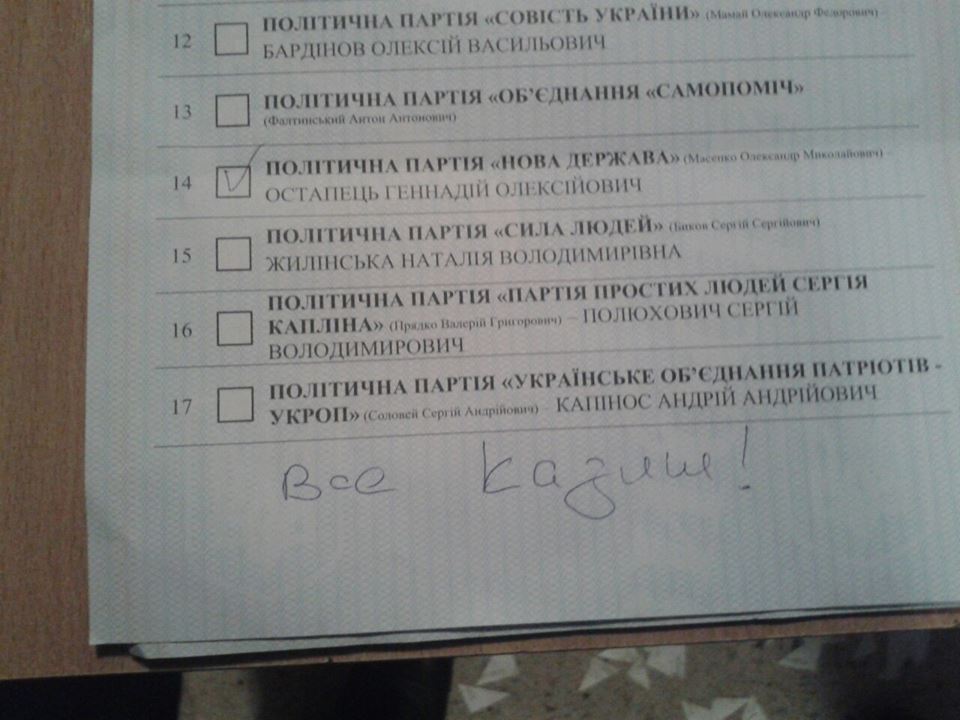 12 ПОЛІТИЧНА ПАРТІЯ «СОВІСТЬ УКРАЇНИ» (Мамай Олександр Федорович) –
БАРДІНОВ ОЛЕКСІЙ ВАСИЛЬОВИЧ
13 ПОЛІТИЧНА ПАРТІЯ «ОБ’ЄДНАННЯ «САМОПОМІЧ»
(Фалтинський Антон Антонович)
14 ПОЛІТИЧНА ПАРТІЯ «НОВА ДЕРЖАВА» (Масенко Олександр Миколайович) –
ОСТАПЕЦЬ ГЕННАДІЙ ОЛЕКСІЙОВИЧ
15 ПОЛІТИЧНА ПАРТІЯ «СИЛА ЛЮДЕЙ» (Биков Сергій Сергійович)
ЖИЛІНСЬКА НАТАЛІЯ ВОЛОДИМИРІВНА
16 ПОЛІТИЧНА ПАРТІЯ «ПАРТІЯ ПРОСТИХ ЛЮДЕЙ СЕРГІЯ
КАПЛІНА» (Прядко Валерій Григорович) – ПОЛЮХОВИЧ СЕРГІЙ
ВОЛОДИМИРОВИЧ
17 ПОЛІТИЧНА ПАРТІЯ «УКРАЇНСЬКЕ ОБ’ЄДНАННЯ ПАТРІОТІВ -
УКРОП» (Соловей Сергій Андрійович) – КАПІНОС АНДРІЙ АНДРІЙОВИЧ
Все